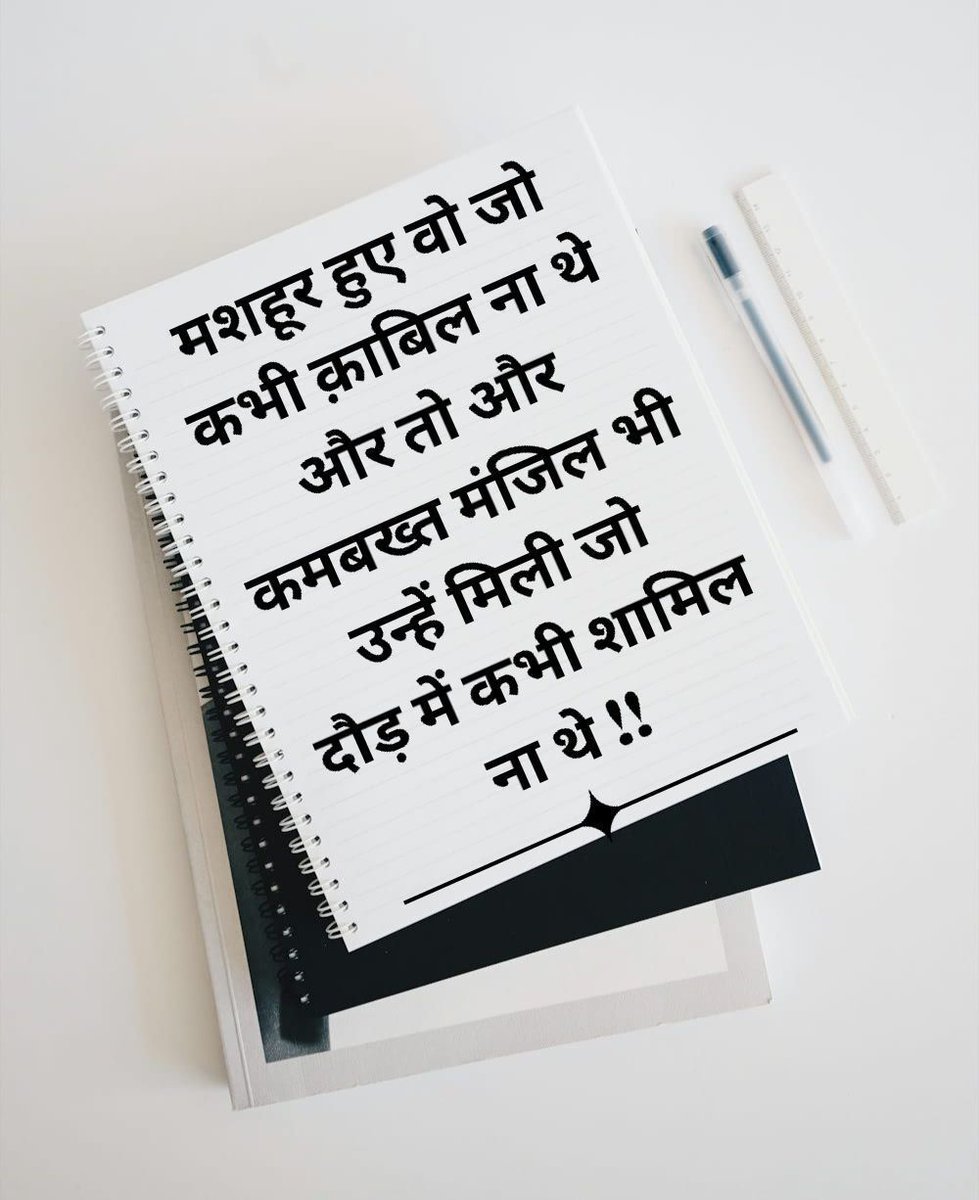 मशहूर हुए वो जो
कभी क़ाबिल ना थे
और तो और
कमबख्त मंजिल भी
उन्हें मिली जो
दौड़ में कभी शामिल
ना थे !!